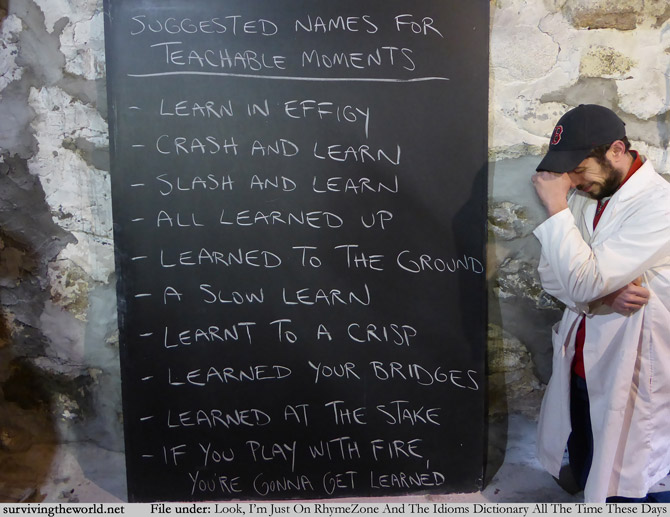 SUGGESTED NAMES FOR
TEACHABLE MOMENTS
- LEARN IN EFFIGY
- CRASH AND LEARN
- SLASH AND LEARN
- ALL LEARNED UP
- LEARNED TO THE GROUND
- A SLOW LEARN
- LEARNT TO A CRISP
- LEARNED YOUR BRIDGES
- LEARNED AT THE STAKE
- IF YOU PLAY WITH FIRE,
YOU'RE GONNA GET LEARNED
B
survivingtheworld.net File under: Look, I'm Just On RhymeZone And The Idioms Dictionary All The Time These Days